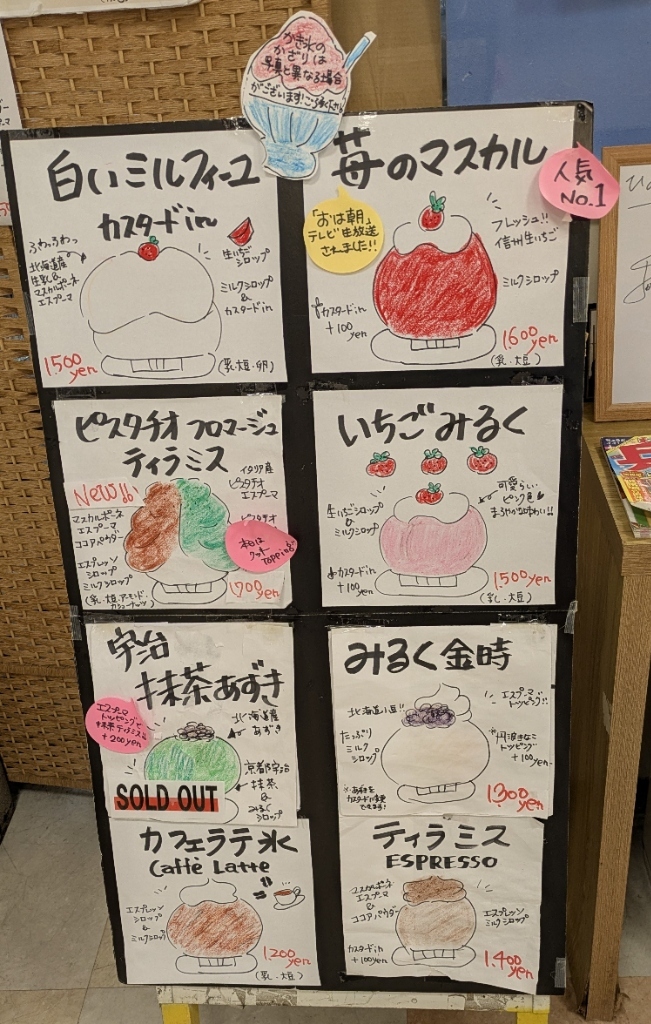 かき氷の
かざりは
写真と異なる場合
がございます!ご了承ください
白いミルフィーユ
カスタードin
ふわっふわっ
北海道産
生乳&
マスカルポーネ
エスプーマ
生いちご
シロップ
ミルクシロップ
&
カスタードin
1500
yen
(乳・大豆・卵)
苺のマスカル
人気
No.1
「おは朝」
テレビ生放送
されました!!
フレッシュ!!
信州生いちご
ミルクシロップ
カスタードin
+100
yen
1600
yen
(乳・大豆)
ピスタチオ フロマージュ
ティラミス
New!!
イタリア産
ピスタチオ
エスプーマ
マスカルポーネ
エスプーマ
ココアパウダー
ピスタチオ
本日は
クッキー
Topping
エスプレッソ
シロップ
ミルクシロップ
1700
yen
(乳・大豆・アーモンド・
カシューナッツ)
いちごみるく
生いちごシロップ
&
ミルクシロップ
可愛らしい
ピンク色
まろやかな味わい!!
カスタードin
+100
yen
1500
yen
(乳・大豆)
宇治
抹茶あずき
エスプーマ
トッピングで
抹茶ティラミスに
+200yen
北海道産
あずき
京都宇治
抹茶
&
みるく
シロップ
SOLD OUT
みるく金時
北海道小豆!!
エスプーマ
トッピング!!
たっぷり
ミルク
シロップ
※丹波きなこ
トッピング
+100
yen
※あずきを
カスタードに変更
できます!
1300
yen
カフェラテ氷
Caffè Latte
エスプレッソ
シロップ
&
ミルクシロップ
1200
yen
(乳・大豆)
ティラミス
ESPRESSO
マスカルポーネ
エスプーマ
&
ココアパウダー
エスプレッソ
ミルクシロップ
カスタードin
+100yen
1400
yen